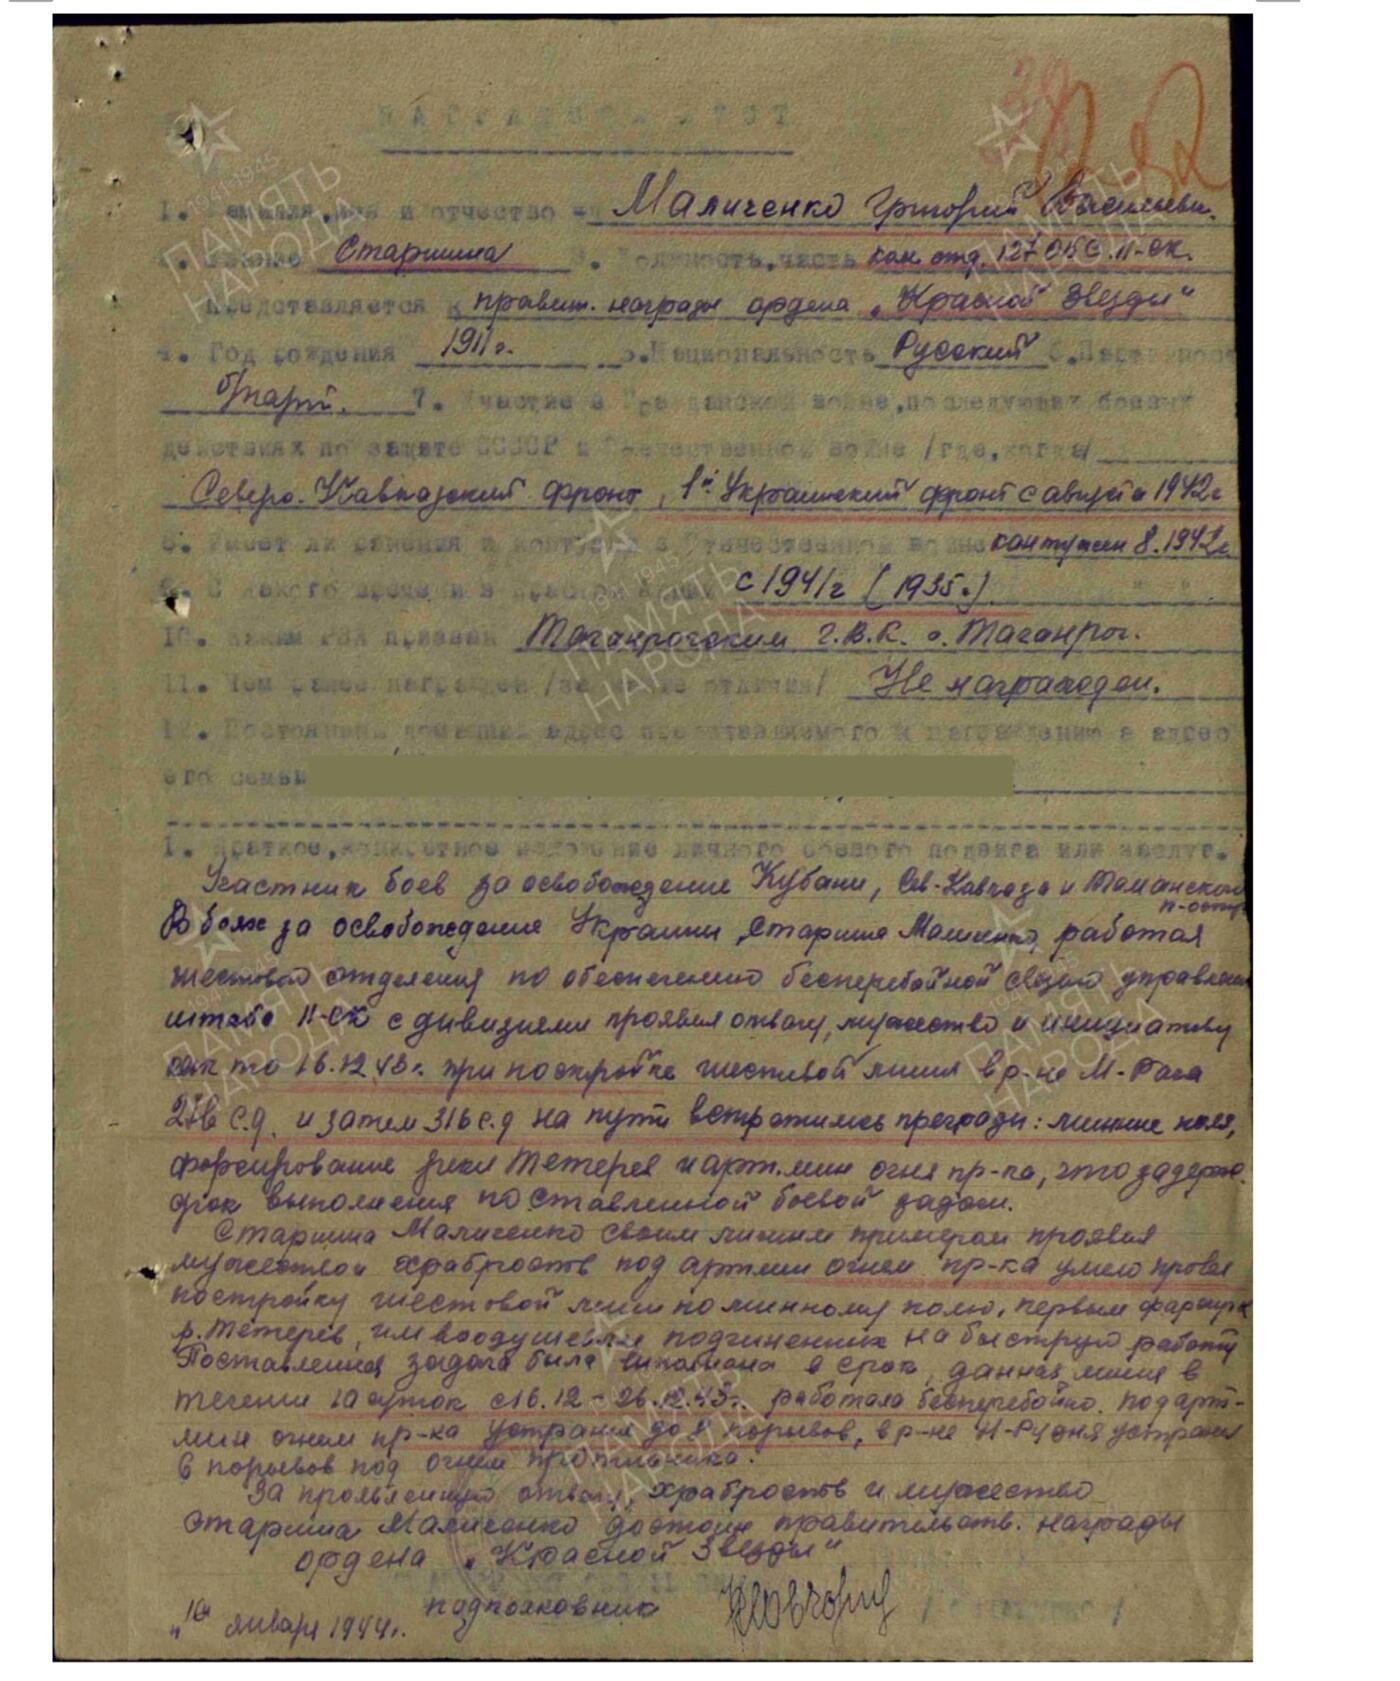 НАГРАДНОЙ ЛИСТ
1. Фамилия, имя и отчество - Маличенко Григорий Васильеви.
2. Звание Старшина 3. Должность, часть ком. отд. 127 ОПС. 11-СК.
Представляется к правит. награде ордена „Красной Звезды“
4. Год рождения 1911 г. 5. Национальность Русский 6. Партийност
б/парт. 7. Участие в Гражданской войне, последующих боевых
действиях по защите СССР и Отечественной войне /где, когда/
Северо. Кавказский фронт, 1й Украинский фронт с августа 1942 г
8. Имеет ли ранения и контузии в Отечественной войне контужен 8. 1942 г.
9. С какого времени в Красной Армии с 1941 г (1935 г.)
10. Каким РВК призван Таганрогским Г.В.К. г. Таганрог.
11. Чем ранее награжден /за какие отличия/ Не награжден.
12. Постоянный домашний адрес представляемого к награждению и адрес
его семьи
1. Краткое, конкретное изложение личного боевого подвига или заслуг.
Участник боев за освобождение Кубани, Сев-Кавказа и Таманском
п-остр.
В боях за освобождение Украины, Старшина Маличенко, работая
шестовой отделения по обеспечению бесперебойной связью управления
штаба 11-СК с дивизиями проявил отвагу, мужество и инициативу
как то 16.12.43 г. при постройке шестовой линии в р-не М-Рача
276 с.д. и затем 316 с.д на пути встретились преграды: минные поля,
форсирование реки Тетерев и арт. мин огня пр-ка, что задерж.
срок выполнения поставленной боевой задачи.
Старшина Маличенко своим личным примером проявил
мужество и храбрость под артмин огнем пр-ка умело провел
постройку шестовой линии по минному полю, первым форсир.
р. Тетерев, воодушевляя подчиненных на быструю работу
Поставленная задача была выполнена в срок, данная линия в
течении 10 суток с 16.12 - 26.12.43 г. работала бесперебойно. под арт-
мин огнем пр-ка устранил до 8 порывов, в р-не Н-Рудня устранил
6 порывов под огнем противника.
За проявленную отвагу, храбрость и мужество
старшина Маличенко достоин правительств. награды
ордена „Красной Звезды“
подполковник
„10“ января 1944 г.
ПАМЯТЬ НАРОДА
1941-1945